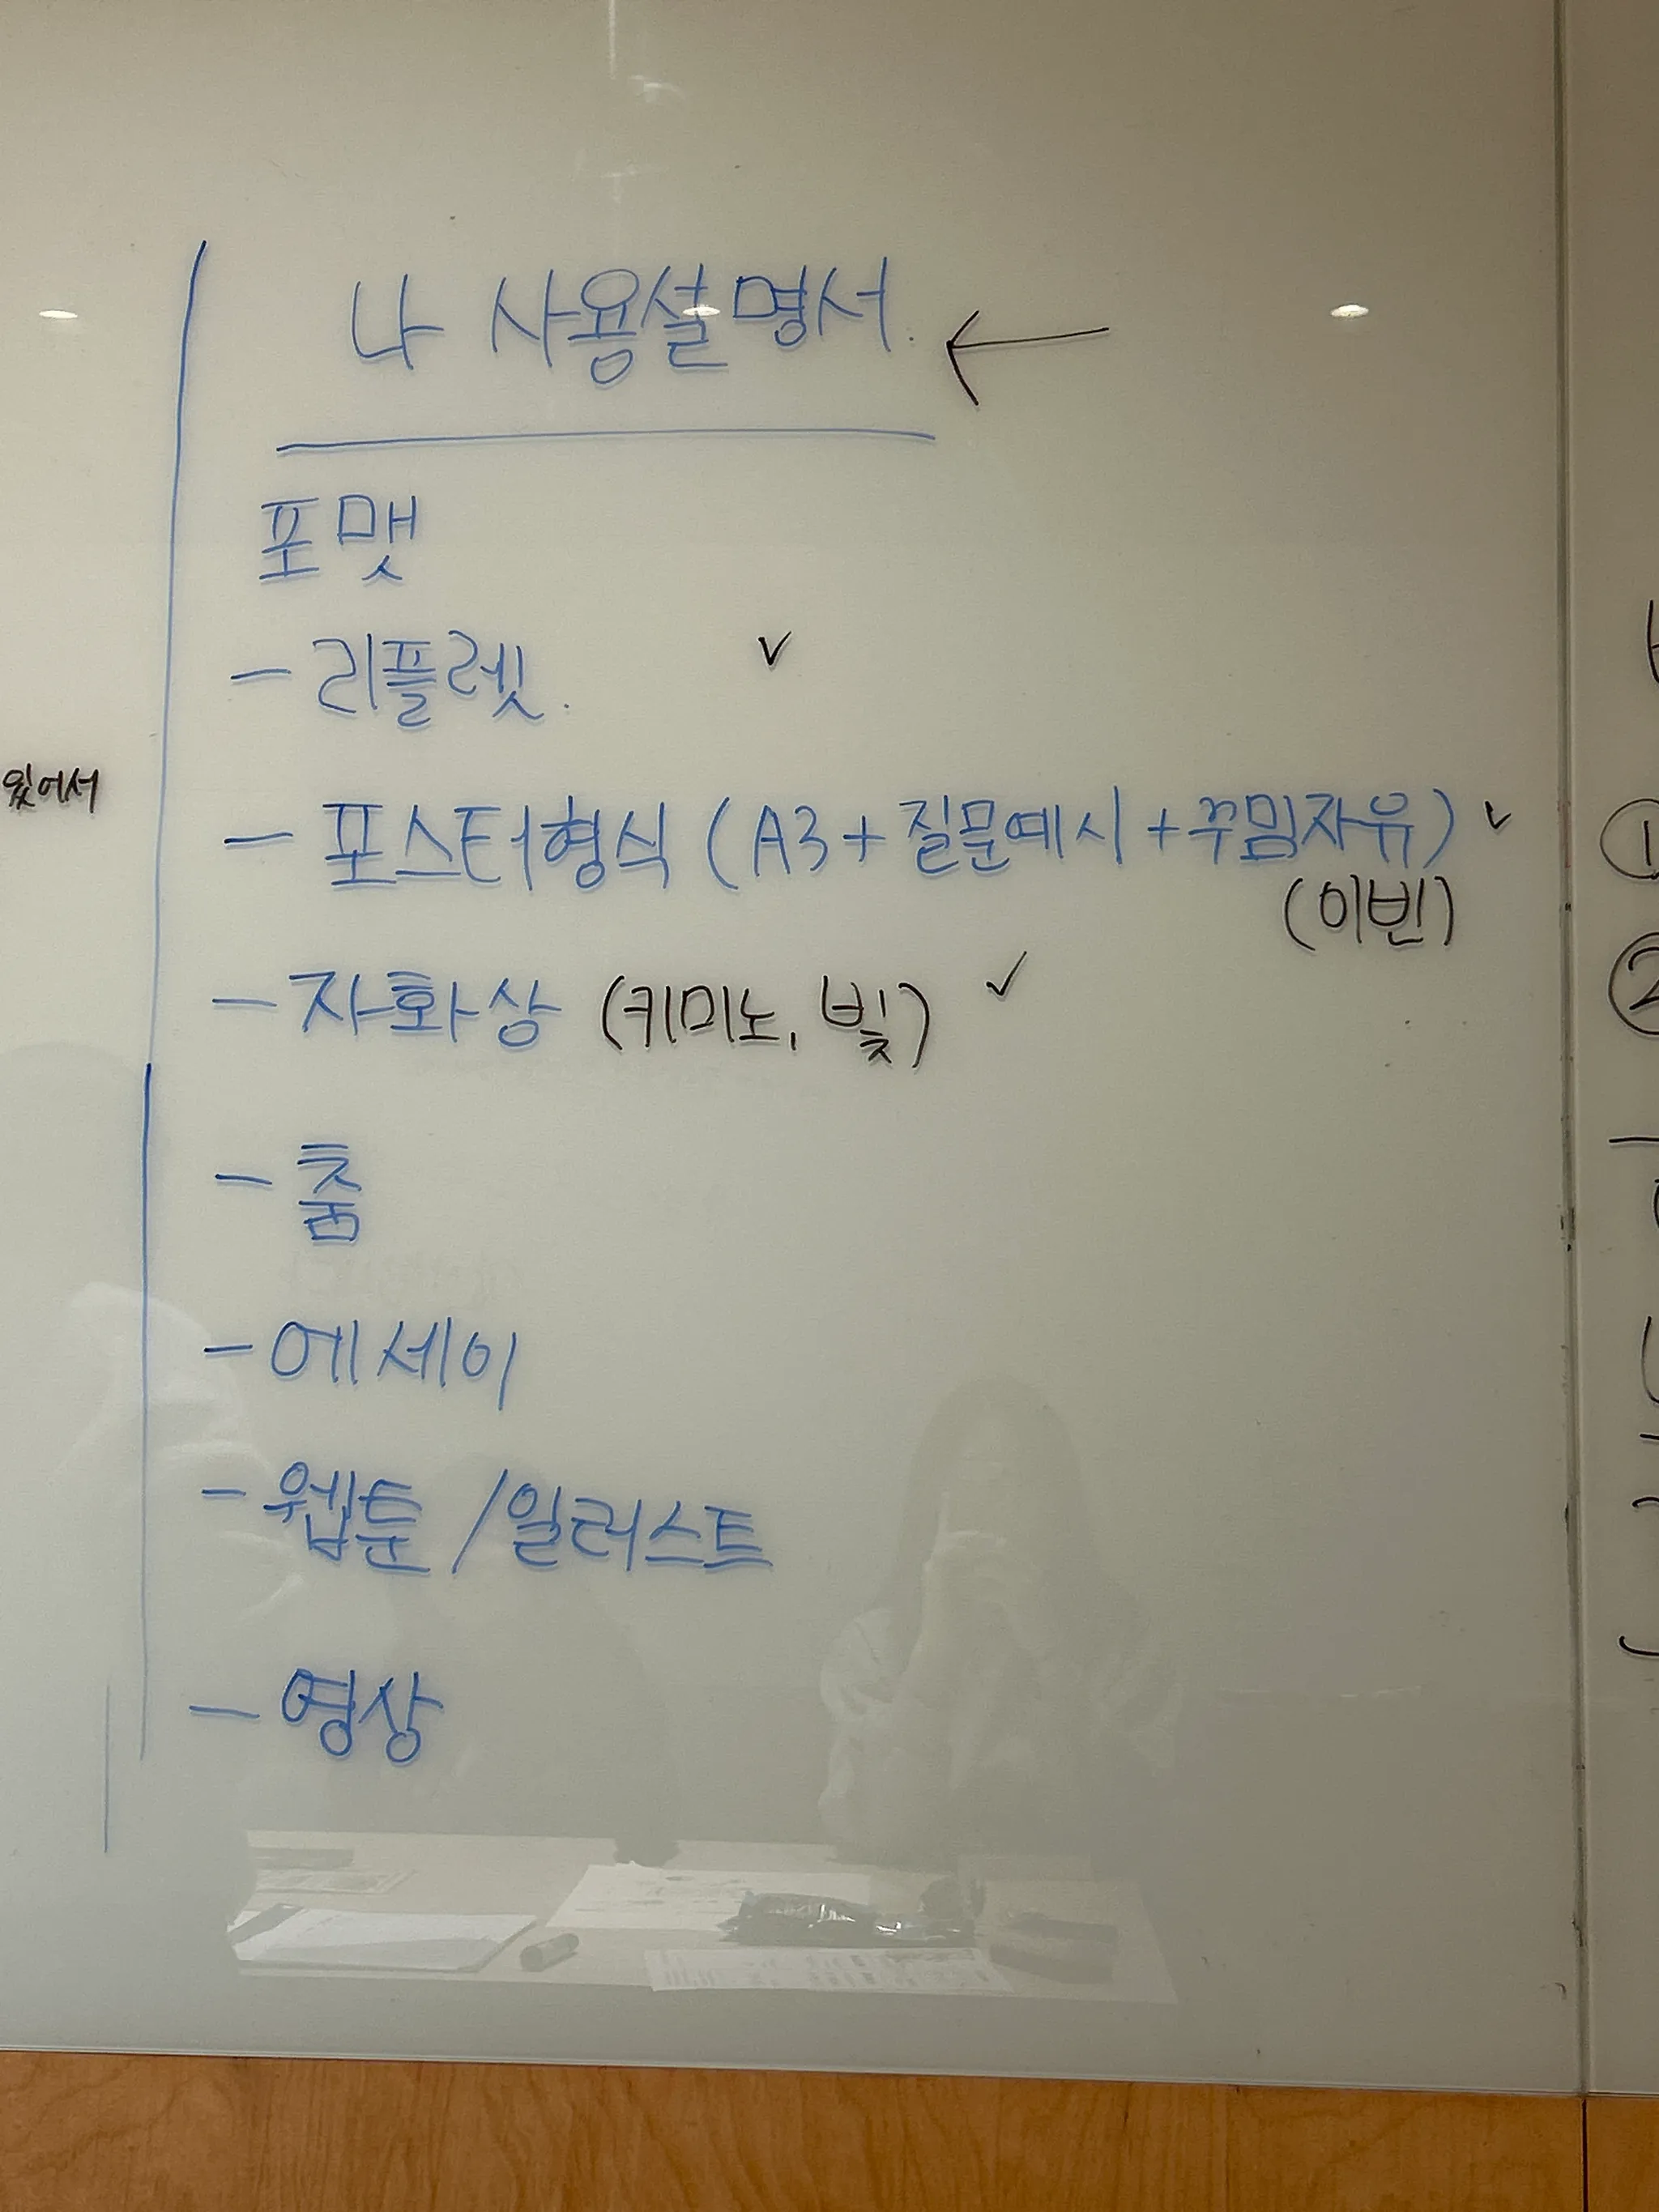 나 사용설명서. ←
포맷
- 리플렛. ✓
- 포스터형식 (A3+질문예시+꾸밈자유) ✓
(이빈)
- 자화상 (키미노, 빛) ✓
- 춤
- 에세이
- 웹툰 / 일러스트
- 영상
있어서
①
②